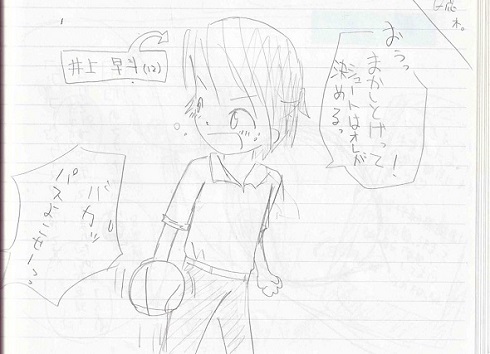 おうっ
まかしとけって!
シュートはオレが
決めるっ
井上 早斗(12)
バカッ
パスよこせーっっ